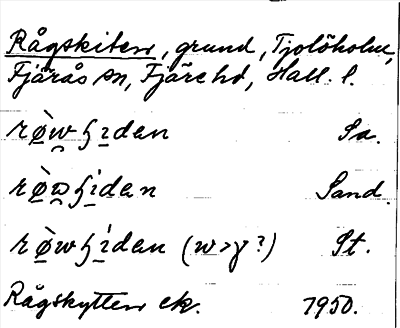 Rågskiten, grund, Tjolöholm,
Fjärås sn, Fjäre hd, Hall. l.
rø̀wʃıdən Sa.
rø̀ʊʃi̇dən Sand.
rø̀wʃı́dən (w>γ?) St.
Rågskytten ek. 1950.